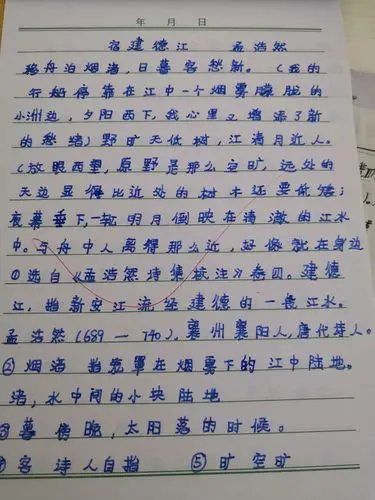 年 月 日
宿建德江 孟浩然
移舟泊烟渚,日暮客愁新。(我的
行船停靠在江中一个烟雾朦胧的
小洲边,夕阳西下,我心里又增添了新
的愁绪)野旷天低树,江清月近人。
(放眼西望,原野是那么空旷,远处的
天边显得比近处的树木还要低矮;
夜幕垂下,一轮明月倒映在清澈的江水
中。与舟中人离得那么近,好像就在身边
①选自《孟浩然诗集校注》卷四。建德
江,指新安江流经建德的一段江水。
孟浩然(689—740),襄州襄阳人,唐代诗人。
②烟渚 指笼罩在烟雾下的江中陆地。
渚,水中间的小块陆地
③暮 傍晚,太阳落的时候。
④客 诗人自指 ⑤旷 空旷